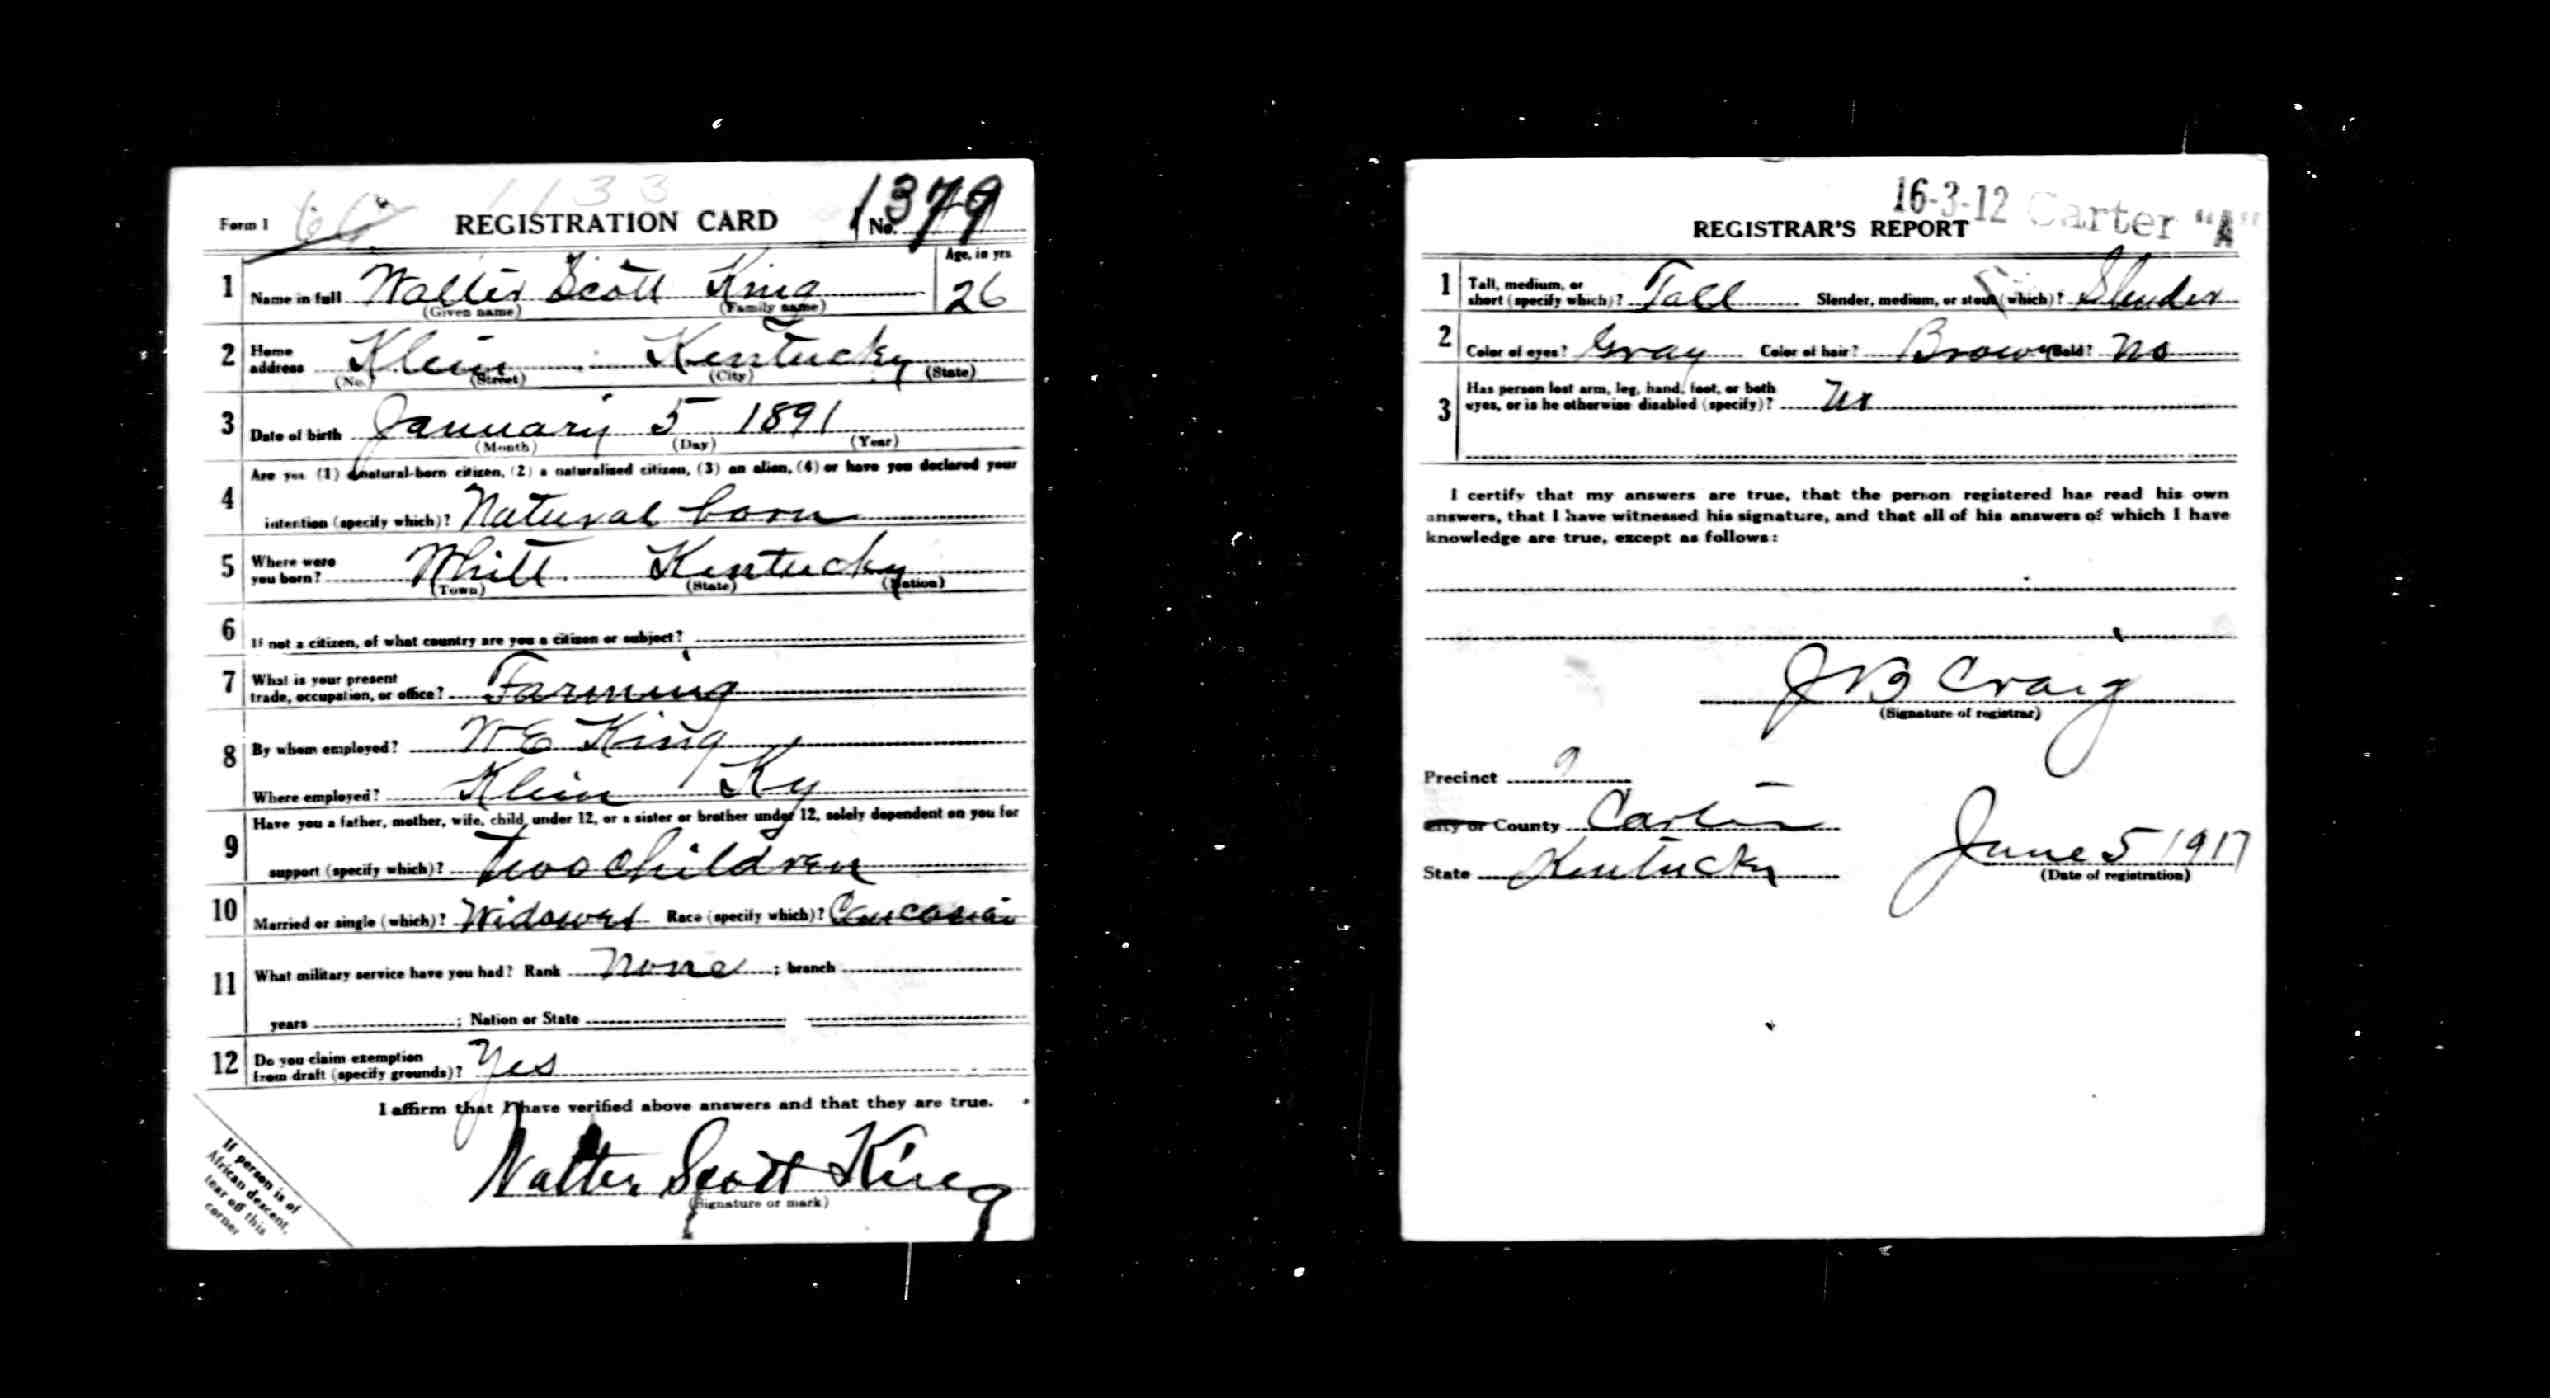 Form 1 66 1133
REGISTRATION CARD No. 1379
1 Name in full Walter Scott King Age, in yrs 26
(Given name) (Family name)
2 Home address Klein Kentucky
(No.) (Street) (City) (State)
3 Date of birth January 5 1891
(Month) (Day) (Year)
4 Are you (1) a natural-born citizen, (2) a naturalized citizen, (3) an alien, (4) or have you declared your
intention (specify which)? Natural born
5 Where were you born? Whitt Kentucky
(Town) (State) (Nation)
6 If not a citizen, of what country are you a citizen or subject?
7 What is your present
trade, occupation, or office? Farming
8 By whom employed? W E King
Where employed? Klein Ky
9 Have you a father, mother, wife, child under 12, or a sister or brother under 12, solely dependent on you for
support (specify which)? Two children
10 Married or single (which)? Widower Race (specify which)? Caucasian
11 What military service have you had? Rank None ; branch
years ; Nation or State
12 Do you claim exemption
from draft (specify grounds)? Yes
I affirm that I have verified above answers and that they are true.
Walter Scott King
(Signature or mark)
If person is of
African descent,
tear off this
corner
16-3-12 Carter "A"
REGISTRAR'S REPORT
1 Tall, medium, or
short (specify which)? Tall Slender, medium, or stout (which)? Slender
2 Color of eyes? Gray Color of hair? Brown Bald? No
3 Has person lost arm, leg, hand, foot, or both
eyes, or is he otherwise disabled (specify)? No
I certify that my answers are true, that the person registered has read his own
answers, that I have witnessed his signature, and that all of his answers of which I have
knowledge are true, except as follows:
J B Craig
(Signature of registrar)
Precinct 9
City or County Carter
State Kentucky June 5 1917
(Date of registration)